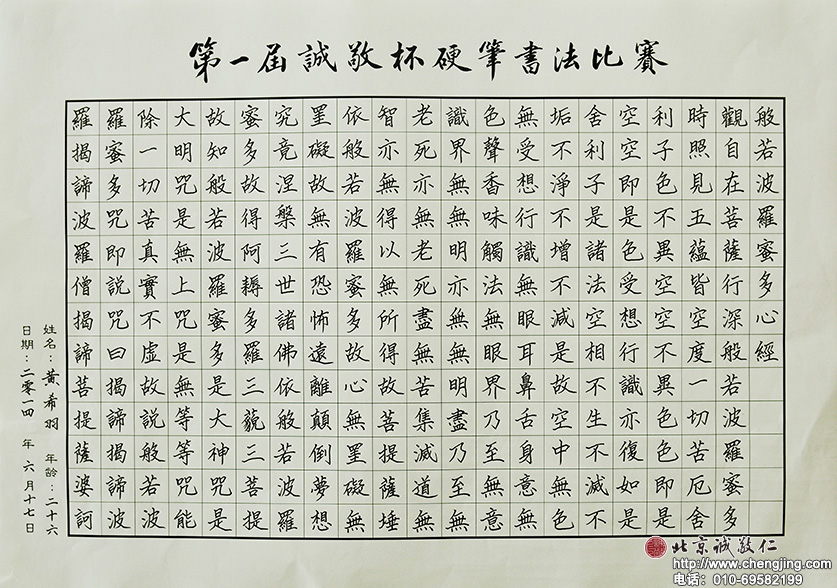 第一届誠敬杯硬筆書法比賽
般若波羅蜜多心經
觀自在菩薩行深般若波羅蜜多
時照見五蘊皆空度一切苦厄舍
利子色不異空空不異色色即是
空空即是色受想行識亦復如是
舍利子是諸法空相不生不滅不
垢不淨不增不減是故空中無色
無受想行識無眼耳鼻舌身意無
色聲香味觸法無眼界乃至無意
識界無無明亦無無明盡乃至無
老死亦無老死盡無苦集滅道無
智亦無得以無所得故菩提薩埵
依般若波羅蜜多故心無罣礙無
罣礙故無有恐怖遠離顛倒夢想
究竟涅槃三世諸佛依般若波羅
蜜多故得阿耨多羅三藐三菩提
故知般若波羅蜜多是大神咒是
大明咒是無上咒是無等等咒能
除一切苦真實不虛故說般若波
羅蜜多咒即說咒曰揭諦揭諦波
羅揭諦波羅僧揭諦菩提薩婆訶
姓名：黃希羽 年齡：二十六
日期：二零一四 年 六 月 十七 日
北京誠敬仁
http://www.chengjing.com
电话：010-69582199